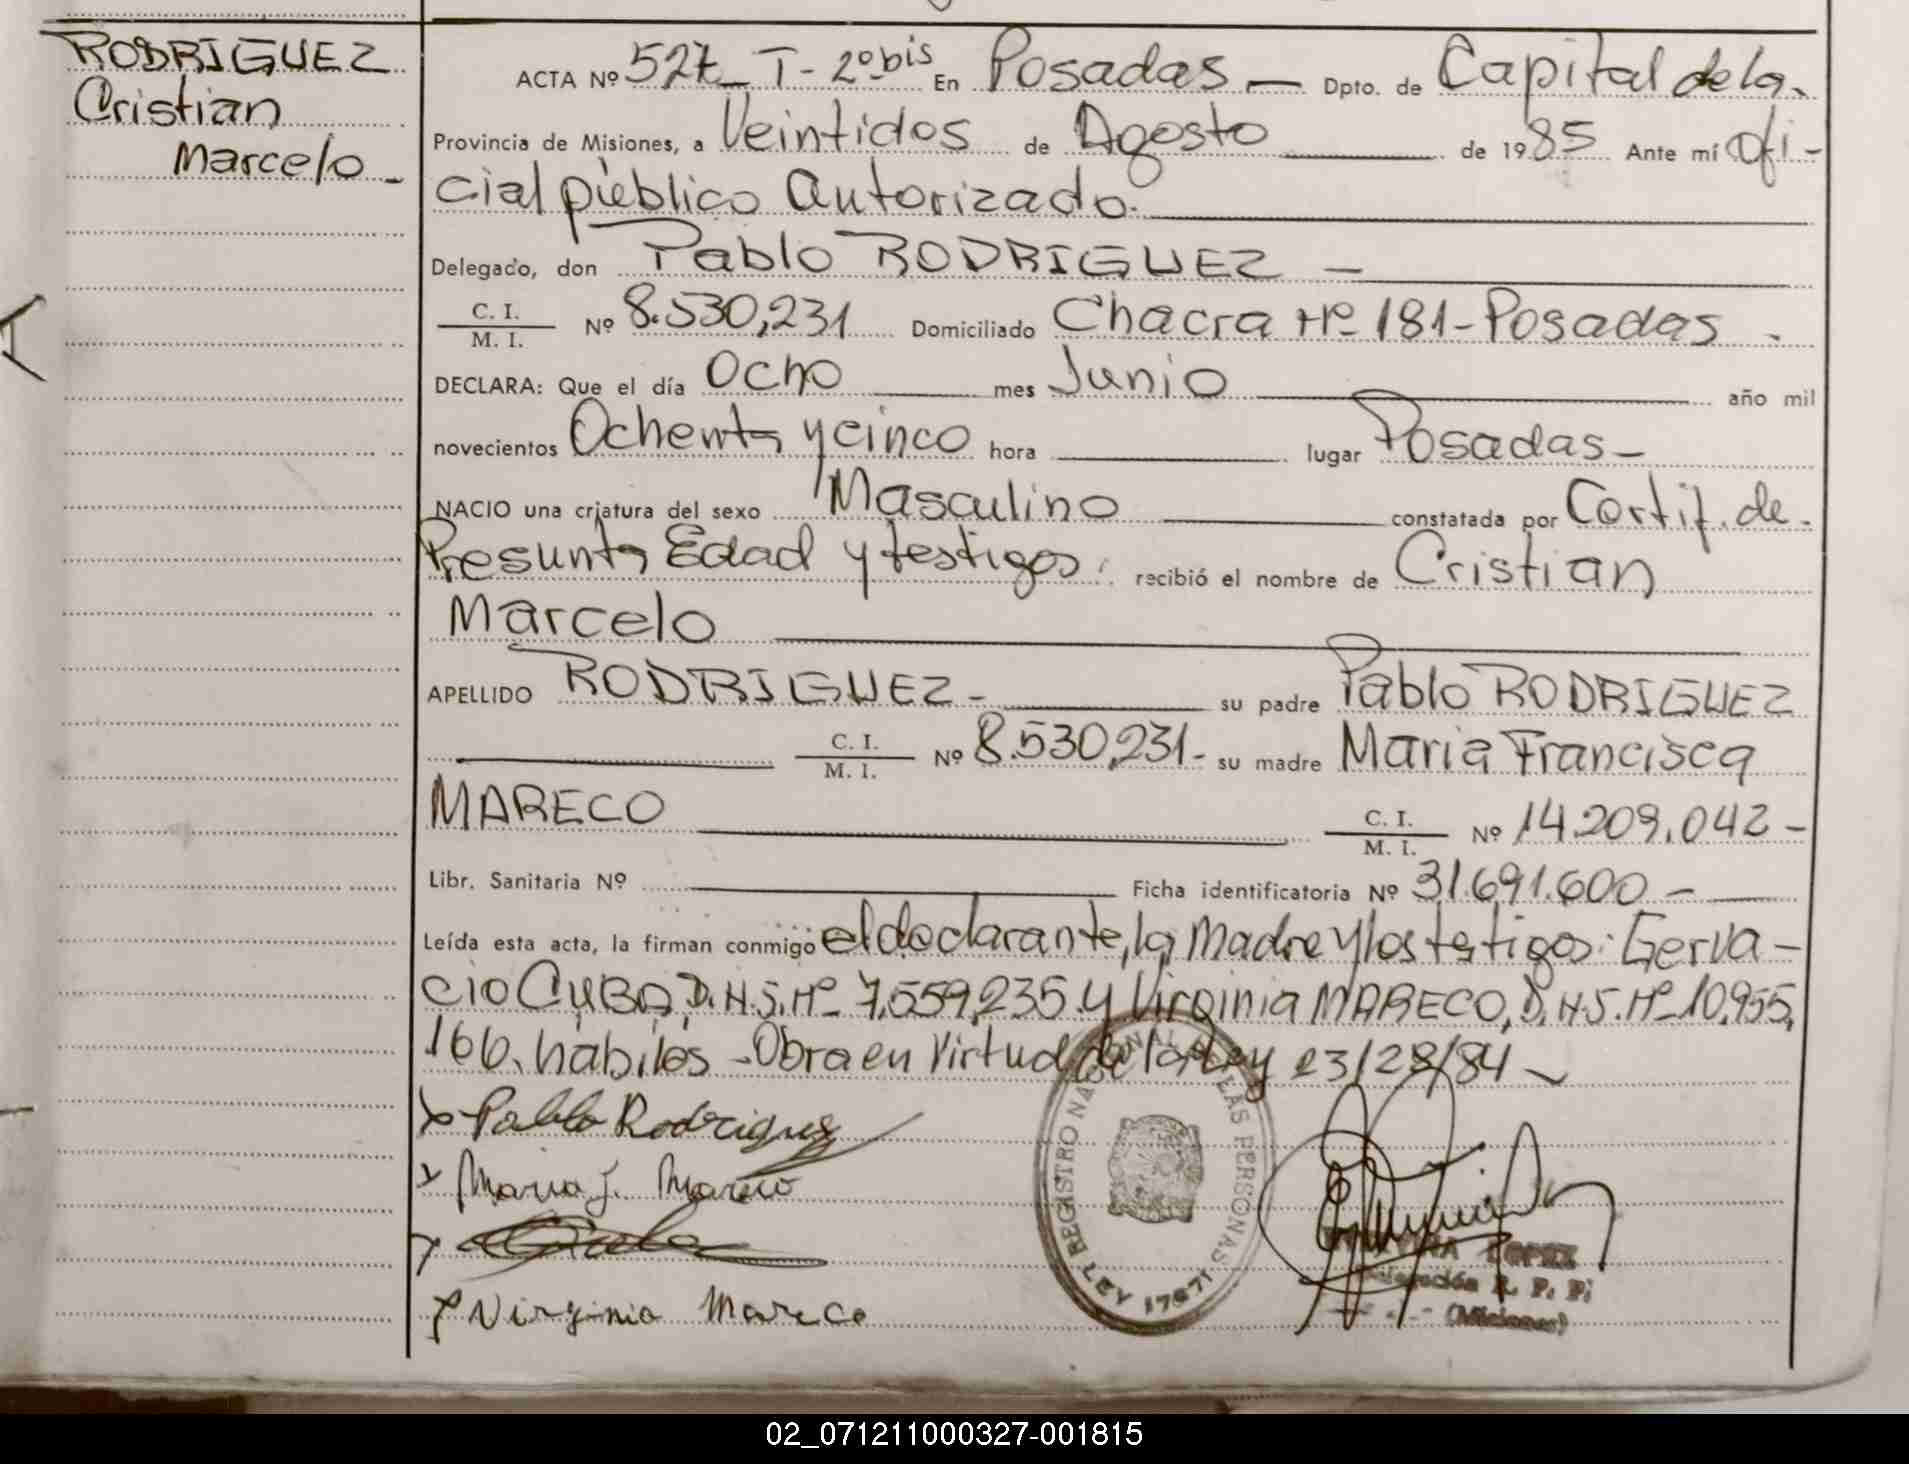 RODRIGUEZ
Cristian
Marcelo -
ACTA Nº 527 T - 2º bis En Posadas — Dpto. de Capital de la
Provincia de Misiones, a Veintidos de Agosto de 1985 Ante mí Ofi-
cial público Autorizado.
Delegado, don Pablo RODRIGUEZ —
C. I.
M. I.
Nº 8.530,231 Domiciliado Chacra Nº 181 - Posadas -
DECLARA: Que el día Ocho mes Junio año mil
novecientos Ochenta y cinco hora lugar Posadas -
NACIO una criatura del sexo Masculino constatada por Certif. de
Presunta Edad y testigos: recibió el nombre de Cristian
Marcelo
APELLIDO RODRIGUEZ - su padre Pablo RODRIGUEZ
C. I.
M. I.
Nº 8.530,231 - su madre Maria Francisca
MARECO
C. I.
M. I.
Nº 14.209.042 -
Libr. Sanitaria Nº Ficha identificatoria Nº 31.691.600 -
Leída esta acta, la firman conmigo el declarante, la Madre y los testigos: Gerva-
cio CUBA, D.N.I. Nº 7,559,235 y Virginia MARECO, D.N.I. Nº 10,955,
166, habiles - Obra en Virtud de la Ley 23/28/84 -
x Pablo Rodriguez
x Maria F. Mareco
x
x Virginia Mareco
REGISTRO NACIONAL DE LAS PERSONAS
LEY 17671
LOPEZ
Delegación R. P. P.
(Misiones)
02_071211000327-001815